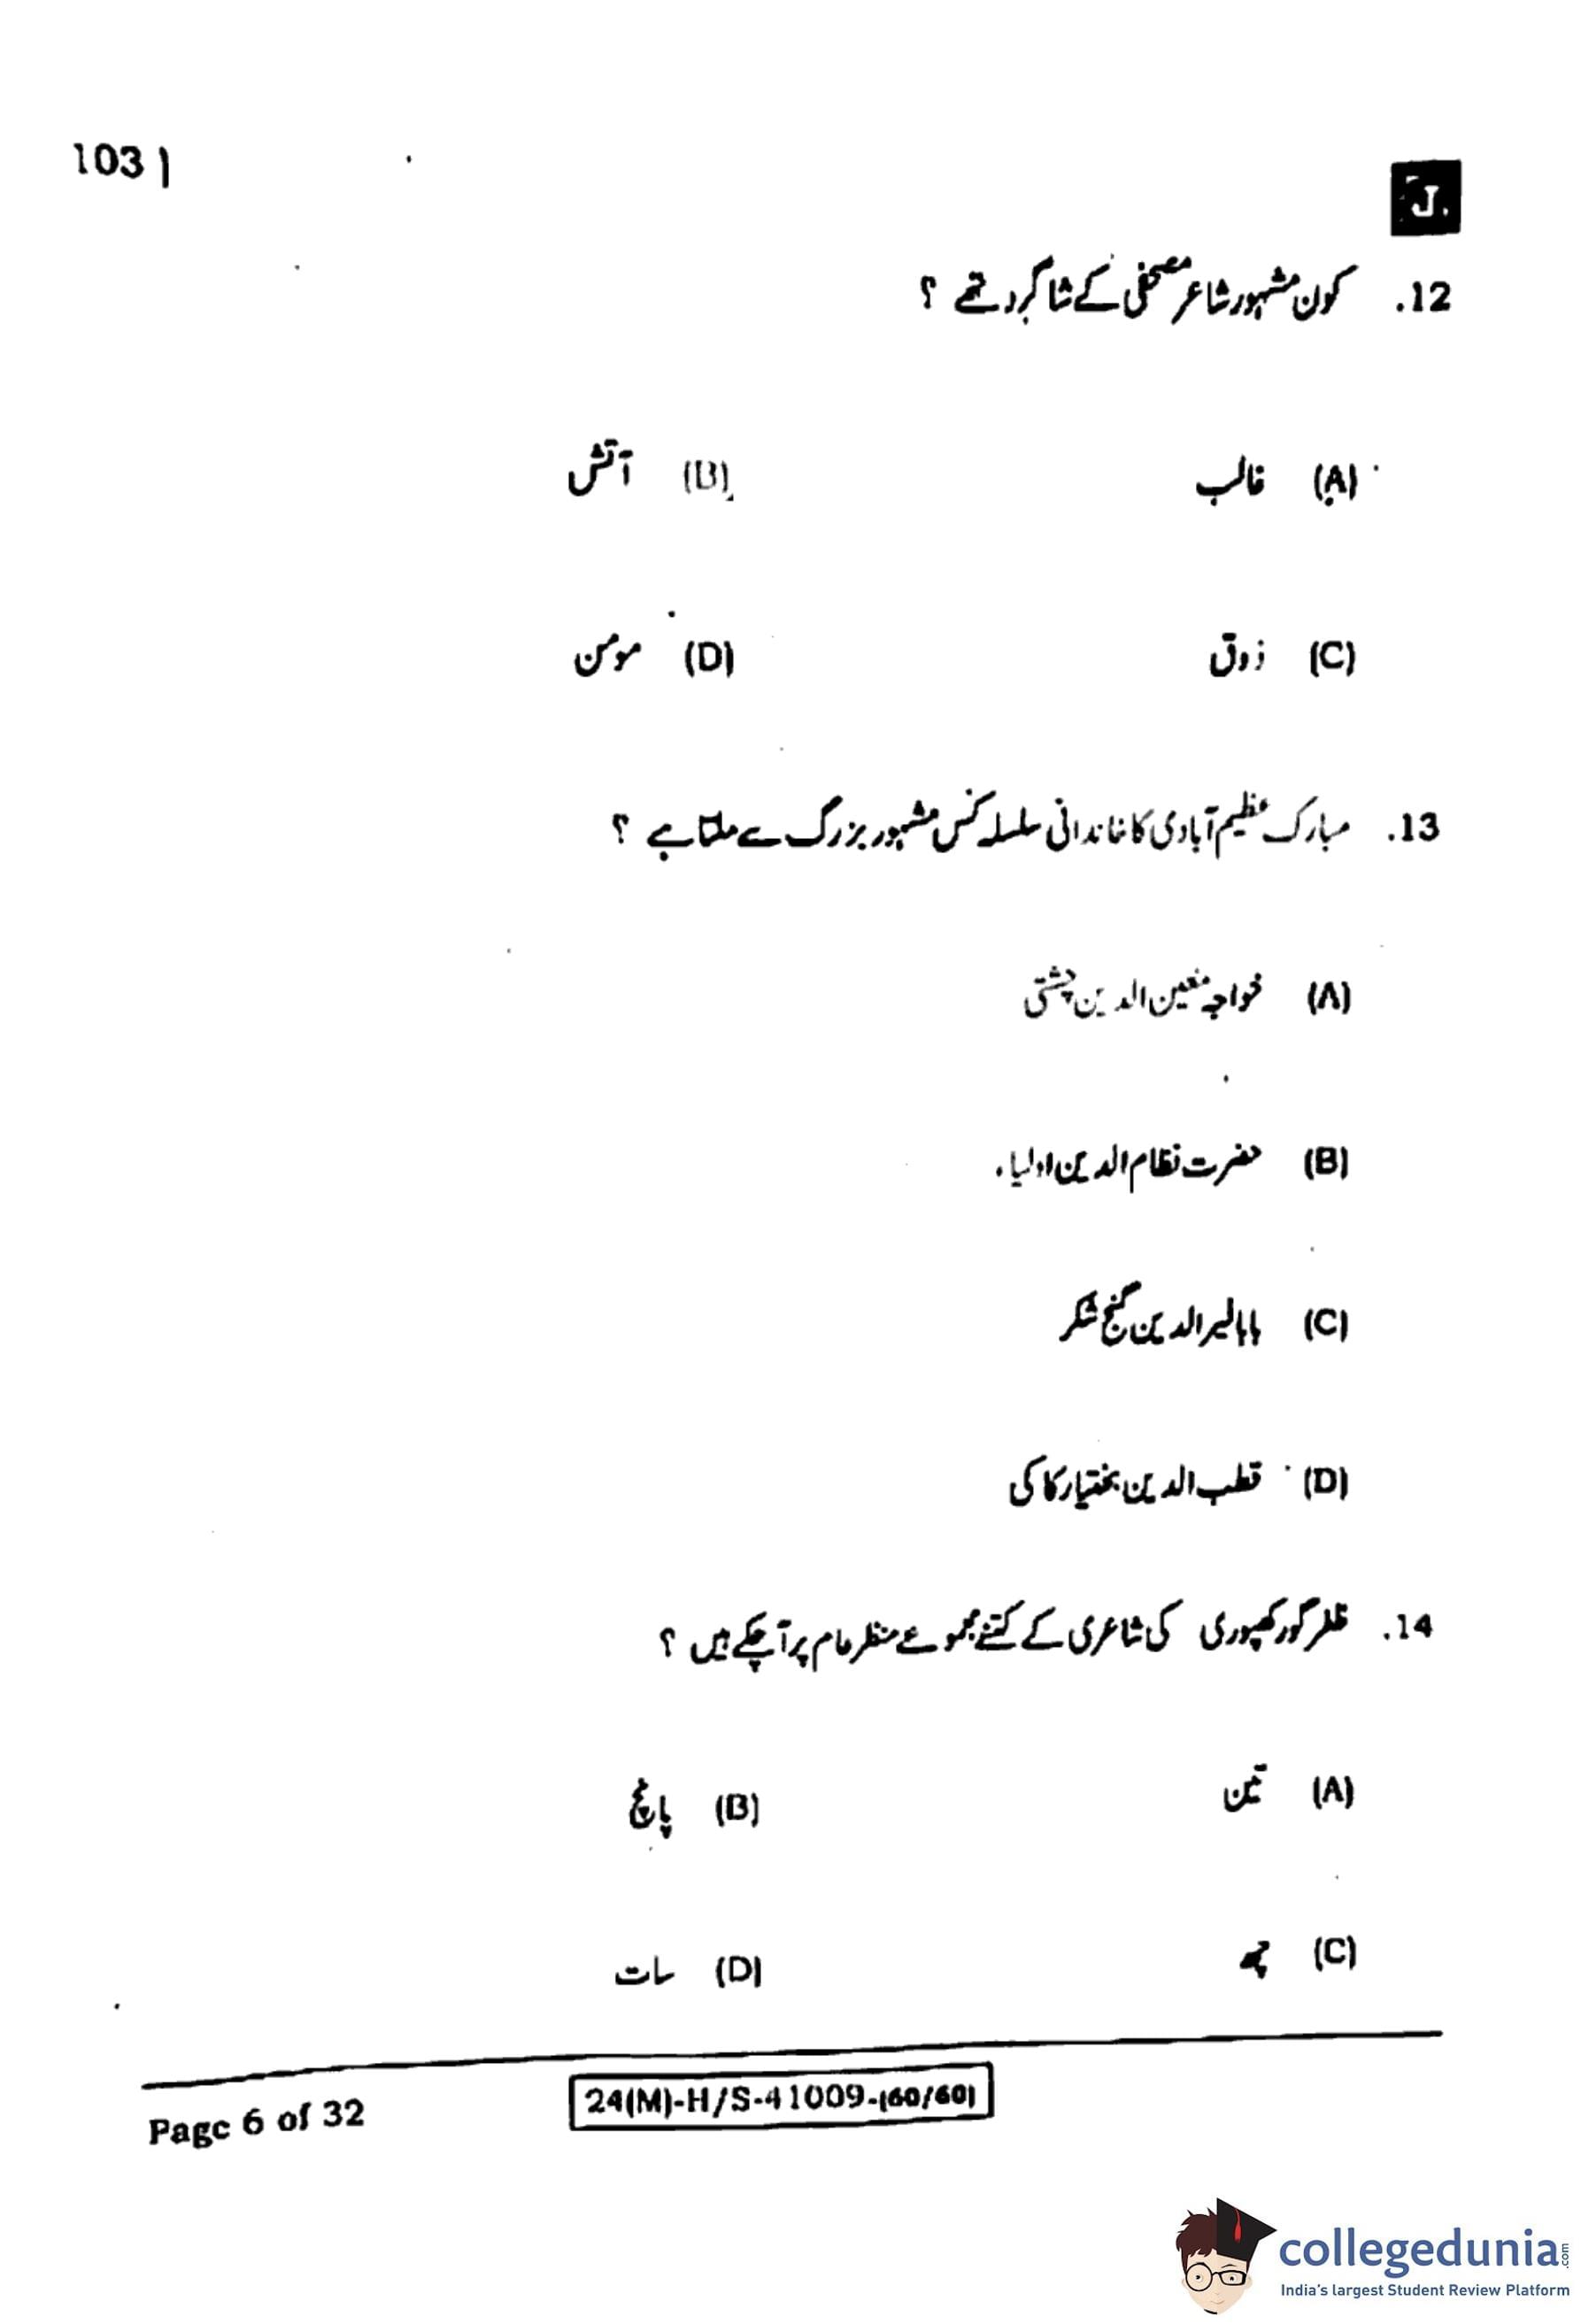 103 |
J.
12. کون مشہور شاعر مصحفی کے شاگرد تھے ؟
(A) غالب (B) آتش
(C) ذوق (D) مومن
13. مبارک عظیم آبادی کا خاندانی سلسلہ کس مشہور بزرگ سے ملتا ہے ؟
(A) خواجہ معین الدین چشتی
(B) حضرت نظام الدین اولیاء
(C) بابا الدین گنج شکر
(D) قطب الدین بختیار کاکی
14. ظفر گورکھپوری کی شاعری کے کتنے مجموعے منظر عام پر آ چکے ہیں ؟
(A) تین (B) پانچ
(C) چھ (D) سات
Page 6 of 32
24(M)-H/S-41009-(60/60)
collegedunia.com
India's largest Student Review Platform